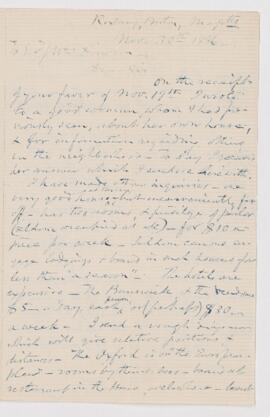 Nov. 20th 18
On the receipt
of your favor of Nov. 17th I wrote
to a good woman whom I had pre-
viously seen, about her own house,
& for information regarding others
in the neighborhood. To day I received
her answer which I enclose herewith.
I have made other inquiries - one
very good house, but inconveniently far
off - has two rooms & privilege of parlor
(seldom occupied at all) - for $10 a-
piece per week - Seldom can one en-
gage lodgings & board in such houses for
less than "a season" - The hotels are
expensive - The Brunswick & the Vendome
$5 - a day, each, or (perhaps) $30
a week - I send a rough diagram
which will give relative positions &
distances - The Oxford is on the European
plan - rooms by themselves - board at
restaurant in the house, or elsewhere -